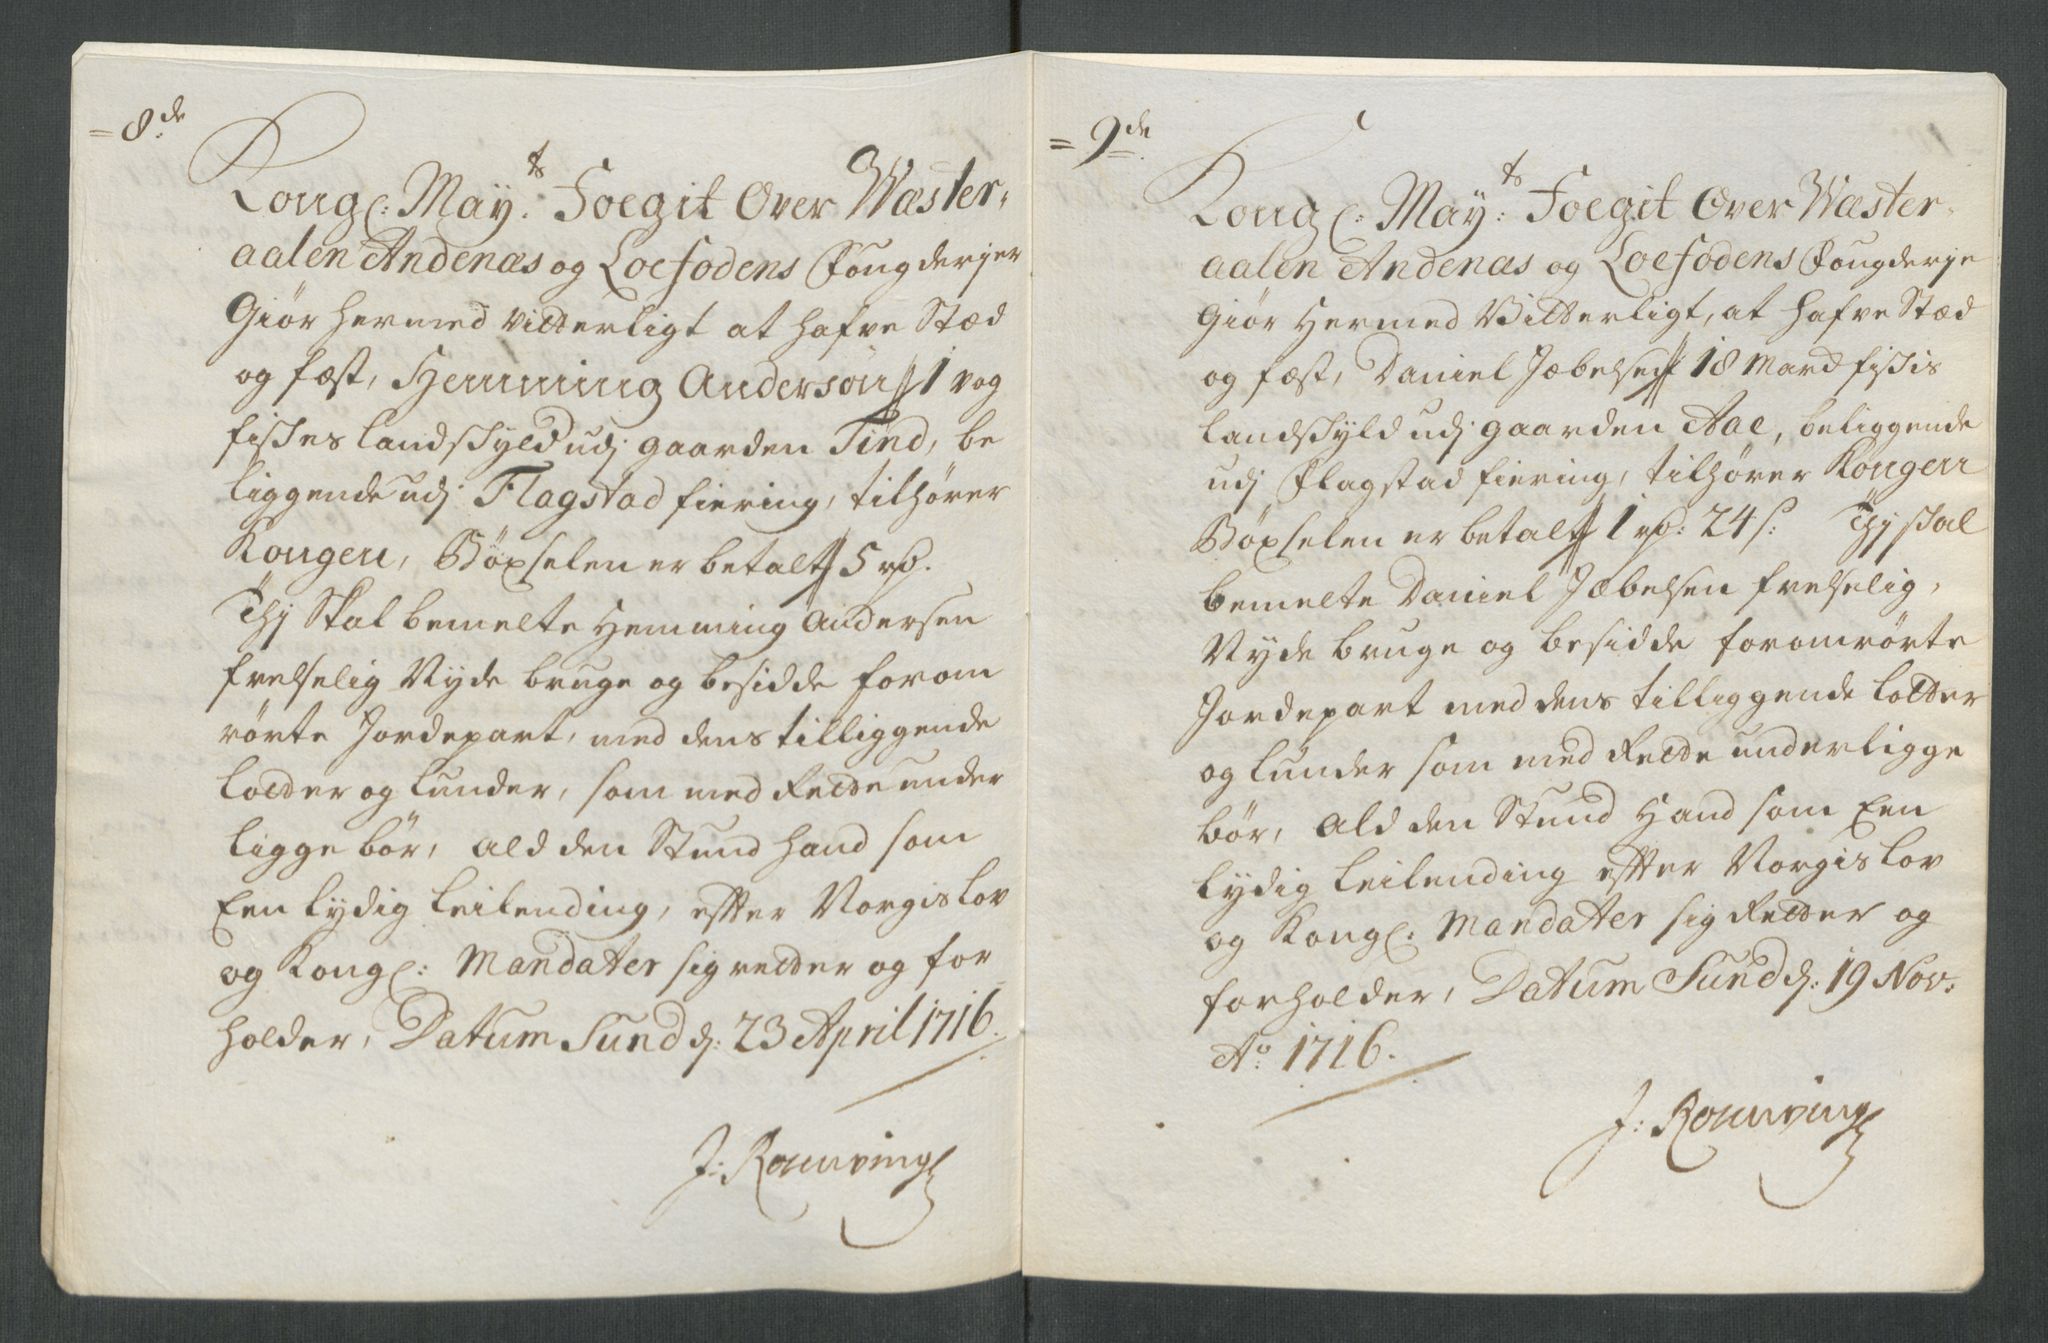 = 8de
Kongl: Mayts: Foegit Over Wæster-
aalen Andenæs og Loefodens Fougderjer
Giör hermed vitterligt at hafve Stæd
og fæst, Hemming Anderson // 1 vog
fiskes landskyld udj gaarden Tind, be
liggende udj Flagstad fiering, tilhörer
Kongen, Böxselen er betalt // 5 rd.
Thj Skal bemelte Hemming Andersen
frelselig Nyde bruge og besidde forom
rörte Jordepart, med dens tilliggende
lotter og lunder, som med Rette under
ligge bör, ald den Stund hand som
Een lydig leilending, efter Norgis lov
og Kongl: Mandater sig retter og for
holder, Datum Sund d: 23 April 1716.
J: Rouwing
= 9de
Kongl: Mayts: Foegit Over Wæster-
aalen Andenæs og Loefodens Fougderje
Giör Hermed Vitterligt, at hafve Stæd
og fæst, Daniel Jæbelsen // 18 Mard fiskis
landskyld udj gaarden Aae, beliggende
udj Flagstad fiering, tilhörer Kongen
Böxselen er betalt // 1 rd: 24 s: Thj skal
bemelte Daniel Jæbelsen frelselig,
Nyde bruge og besidde foromrörte
Jordepart med dens tilliggende lotter
og lunder som med Rette underligge
bör, Ald den Stund Hand som Een
lydig leilending efter Norgis lov
og Kongl: Mandater sig Retter og
forholder, Datum Sund d: 19 Nov:
Ao: 1716.
J: Rouwing